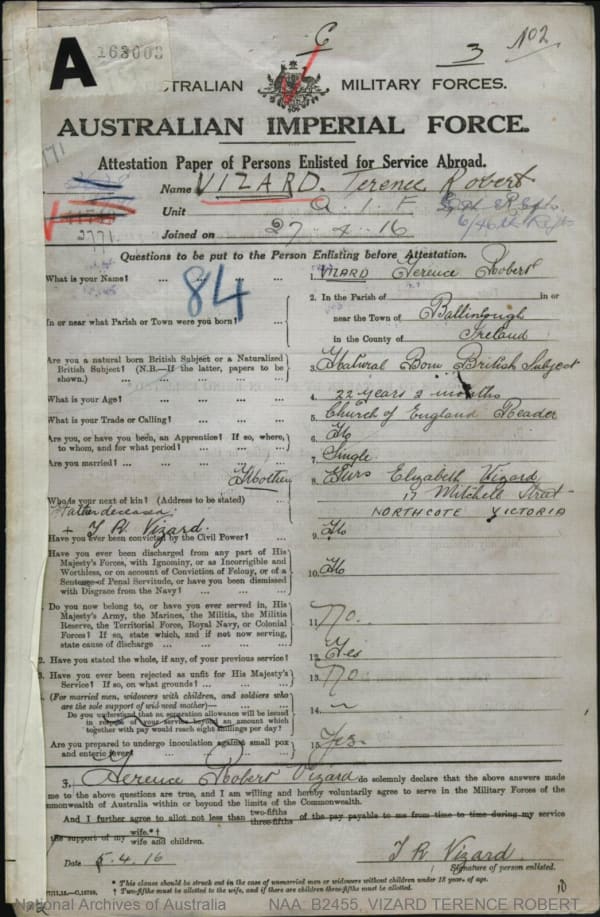 A 163008
C
3 No2
AUSTRALIAN MILITARY FORCES.
AUSTRALIAN IMPERIAL FORCE.
Attestation Paper of Persons Enlisted for Service Abroad.
Name VIZARD. Terence Robert
Unit A. I. F
2771
Joined on 27-4-16
Questions to be put to the Person Enlisting before Attestation.
84
What is your Name? ... ... ... 1. VIZARD Terence Robert
In or near what Parish or Town were you born? ... 2. In the Parish of in or
near the Town of Ballinlough
in the County of Ireland
Are you a natural born British Subject or a Naturalized 3. Natural Born British Subject
British Subject? (N.B.—If the latter, papers to be
shown.) ... ...
What is your Age? ... ... ... 4. 22 years 2 months
What is your Trade or Calling? ... ... 5. Church of England Reader
Are you, or have you been, an Apprentice? If so, where, 6. No
to whom, and for what period? ... ...
Are you married? ... ... ... 7. Single
Mother 8. Mrs Elizabeth Vizard
17 Mitchell Street
Who is your next of kin? (Address to be stated) ... NORTHCOTE VICTORIA
Father deceased
+ T R Vizard.
Have you ever been convicted by the Civil Power? ... 9. No
Have you ever been discharged from any part of His
Majesty's Forces, with Ignominy, or as Incorrigible and
Worthless, or on account of Conviction of Felony, or of a 10. No
Sentence of Penal Servitude, or have you been dismissed
with Disgrace from the Navy? ...
Do you now belong to, or have you ever served in, His
Majesty's Army, the Marines, the Militia, the Militia
Reserve, the Territorial Force, Royal Navy, or Colonial 11. No.
Forces? If so, state which, and if not now serving,
state cause of discharge ... ...
2. Have you stated the whole, if any, of your previous service? 12. Yes
3. Have you ever been rejected as unfit for His Majesty's 13. No
Service? If so, on what grounds? ...
(For married men, widowers with children, and soldiers who
are the sole support of widowed mother)—
Do you understand that no separation allowance will be issued 14. ~
in respect of your service beyond an amount which
together with pay would reach eight shillings per day?
Are you prepared to undergo inoculation against small pox 15. Yes.
and enteric fever? ... ...
I, Terence Robert Vizard do solemnly declare that the above answers made
me to the above questions are true, and I am willing and hereby voluntarily agree to serve in the Military Forces of the
mmonwealth of Australia within or beyond the limits of the Commonwealth.
And I further agree to allot not less than two-fifths three-fifths of the pay payable to me from time to time during my service
the support of my wife.*† wife and children.
Date 5.4.16 T R Vizard.
Signature of person enlisted.
* This clause should be struck out in the case of unmarried men or widowers without children under 18 years of age.
† Two-fifths must be allotted to the wife, and if there are children three-fifths must be allotted.
10
National Archives of Australia NAA: B2455, VIZARD TERENCE ROBERT